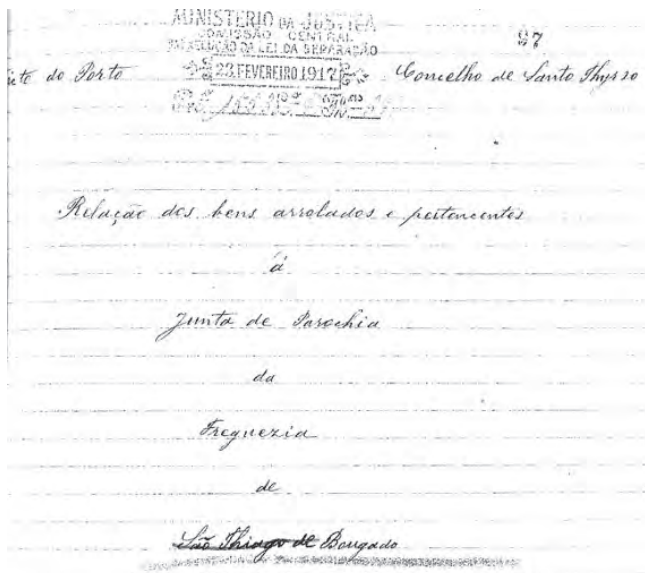 MINISTERIO DA JUSTIÇA
COMISSÃO CENTRAL
DA LEI DA SEPARAÇÃO
97
do Porto
23.FEVEREIRO 1917
Concelho de Santo Thyrso
Relação dos bens arrolados e pertencentes
á
Junta de Parochia
da
Freguezia
de
São Thiago de Bougado